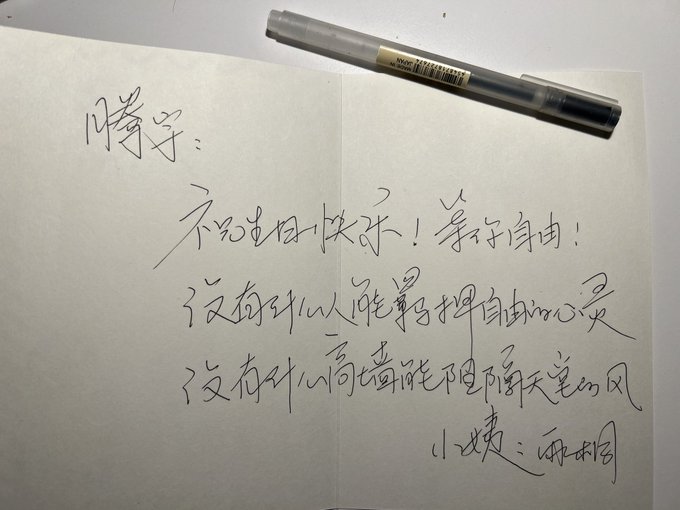 MADE IN
JAPAN
腾宇:
祝生日快乐!等你自由!
没有什么人能羁押自由的心灵
没有什么高墙能阻隔天空的风
小姨:雨桐